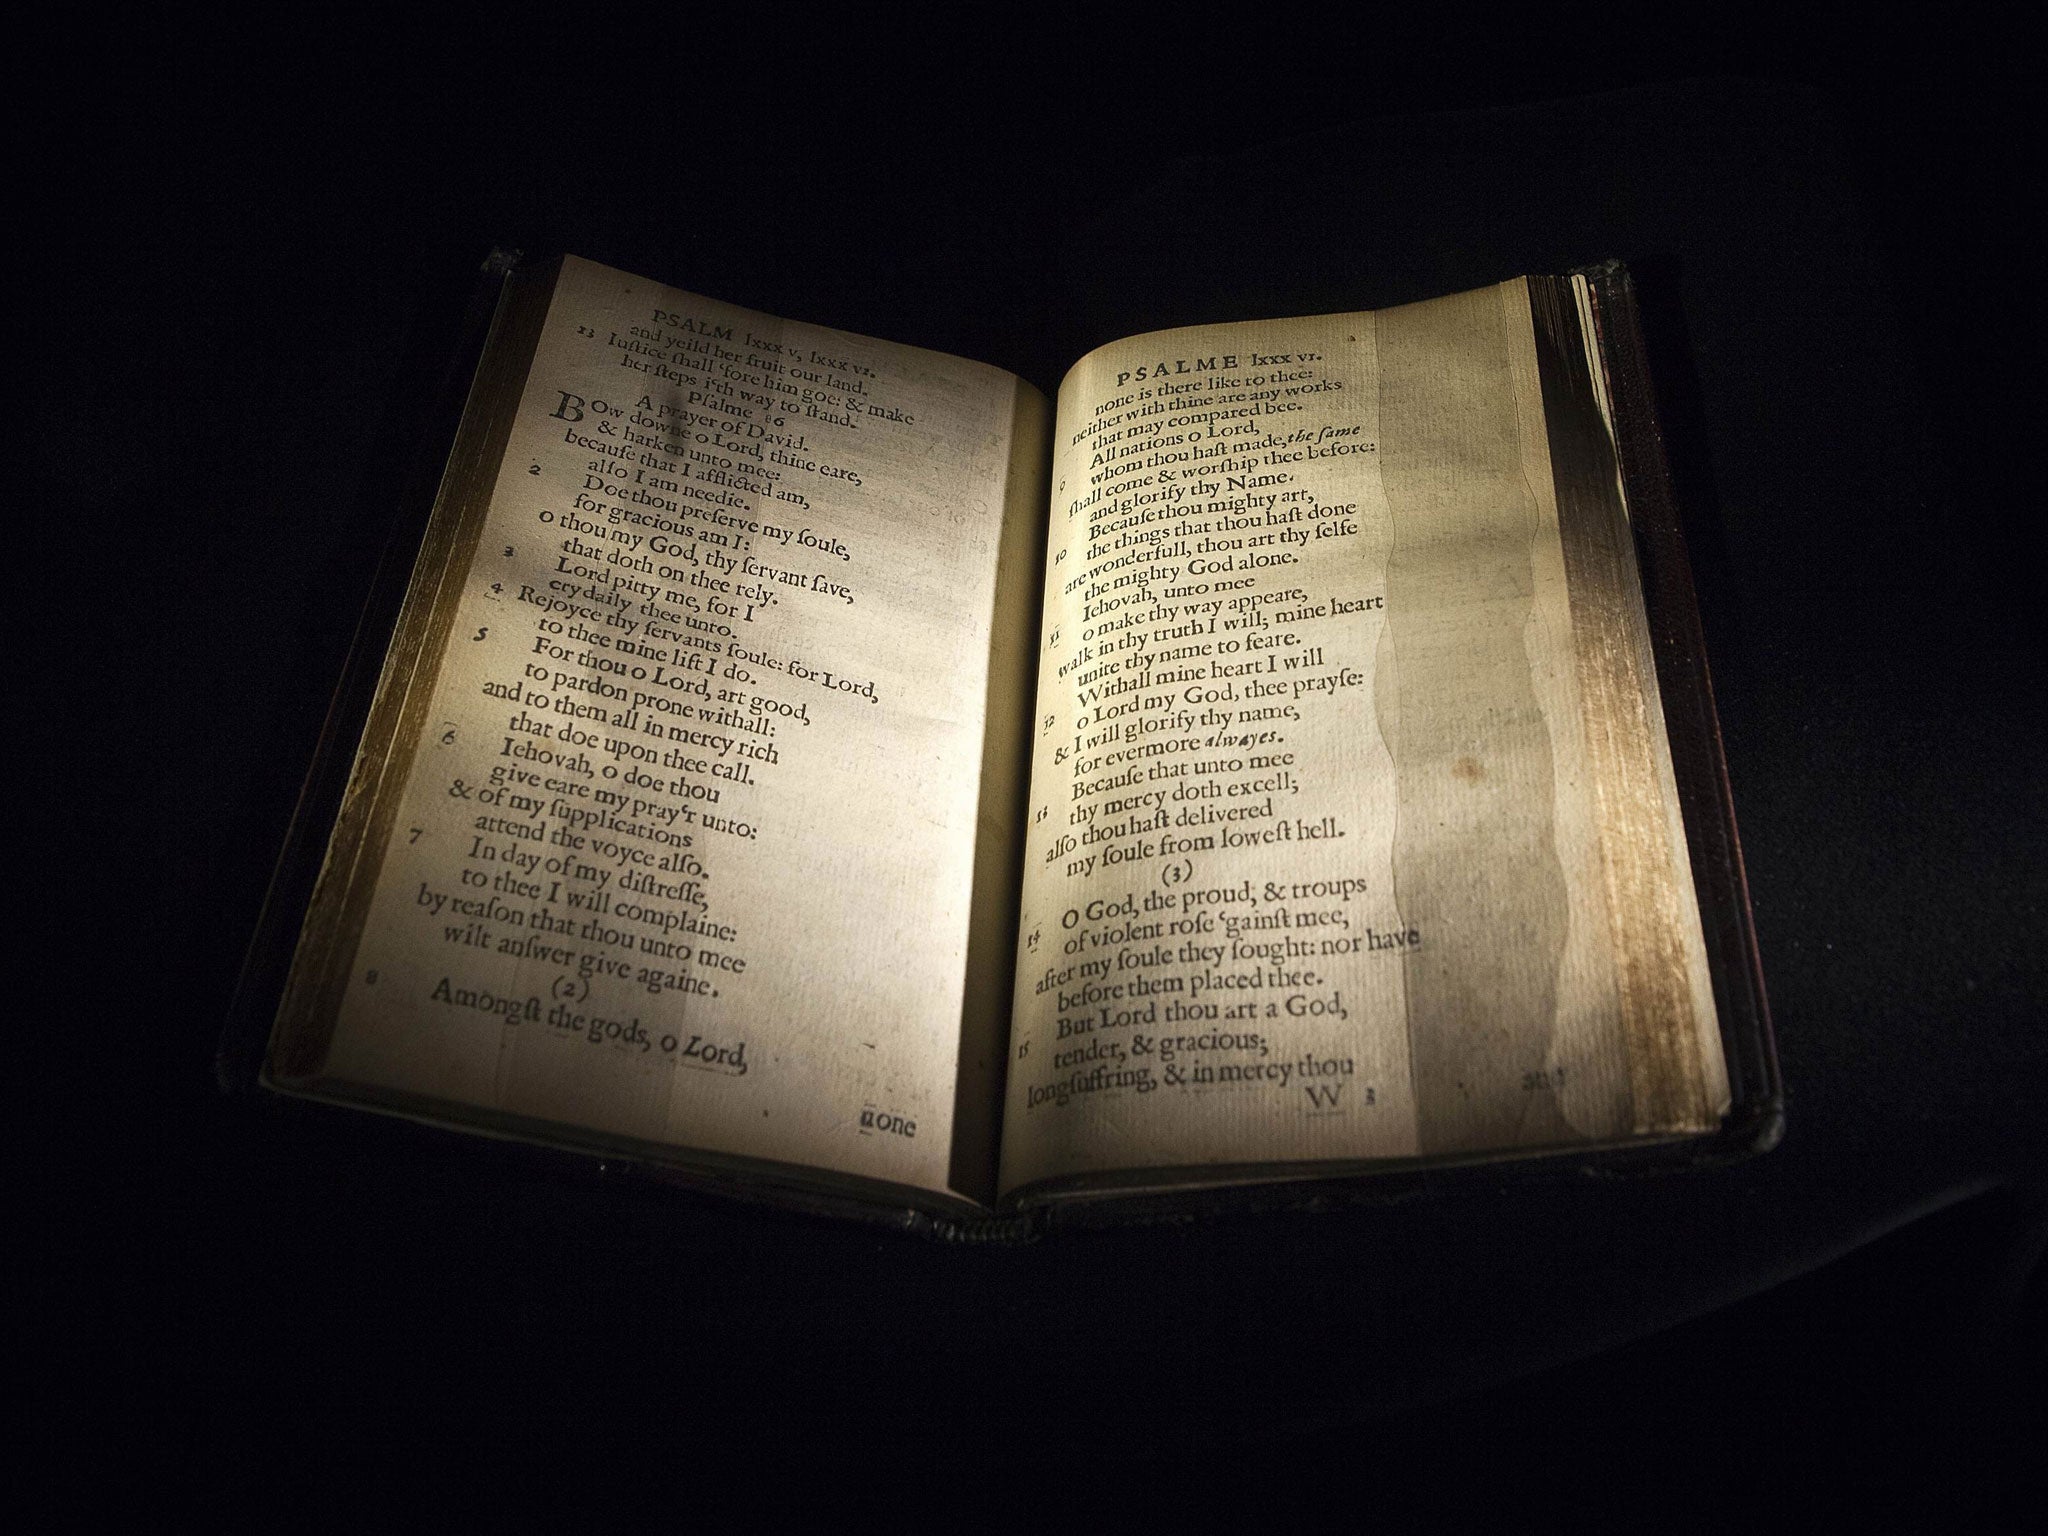 PSALM lxxx v, lxxx vi.
and yeild her fruit our land.
13 Iuſtice ſhall 'fore him goe: & make
her ſteps i'th way to ſtand.
Pſalme 86
A prayer of David.
BOw downe o Lord, thine eare,
& harken unto mee:
becauſe that I afflicted am,
alſo I am needie.
2 Doe thou preſerve my ſoule,
for gracious am I:
o thou my God, thy ſervant ſave,
that doth on thee rely.
3 Lord pitty me, for I
cry daily thee unto.
4 Rejoyce thy ſervants ſoule: for Lord,
to thee mine lift I do.
5 For thou o Lord, art good,
to pardon prone withall:
and to them all in mercy rich
that doe upon thee call.
6 Iehovah, o doe thou
give eare my pray'r unto:
& of my ſupplications
attend the voyce alſo.
7 In day of my diſtreſſe,
to thee I will complaine:
by reaſon that thou unto mee
wilt anſwer give againe.
(2)
8 Amongſt the gods, o Lord,
none
PSALME lxxx vi.
none is there like to thee:
neither with thine are any works
that may compared bee.
9 All nations o Lord,
whom thou haſt made, the ſame
ſhall come & worſhip thee before:
and glorify thy Name.
10 Becauſe thou mighty art,
the things that thou haſt done
are wonderfull, thou art thy ſelfe
the mighty God alone.
11 Iehovah, unto mee
o make thy way appeare,
walk in thy truth I will; mine heart
unite thy name to feare.
12 Withall mine heart I will
o Lord my God, thee prayſe:
& I will glorify thy name,
for evermore alwayes.
13 Becauſe that unto mee
thy mercy doth excell;
alſo thou haſt delivered
my ſoule from loweſt hell.
(3)
14 O God, the proud, & troups
of violent roſe 'gainſt mee,
after my ſoule they ſought: nor have
before them placed thee.
15 But Lord thou art a God,
tender, & gracious;
longſuffring, & in mercy thou
W 2
and